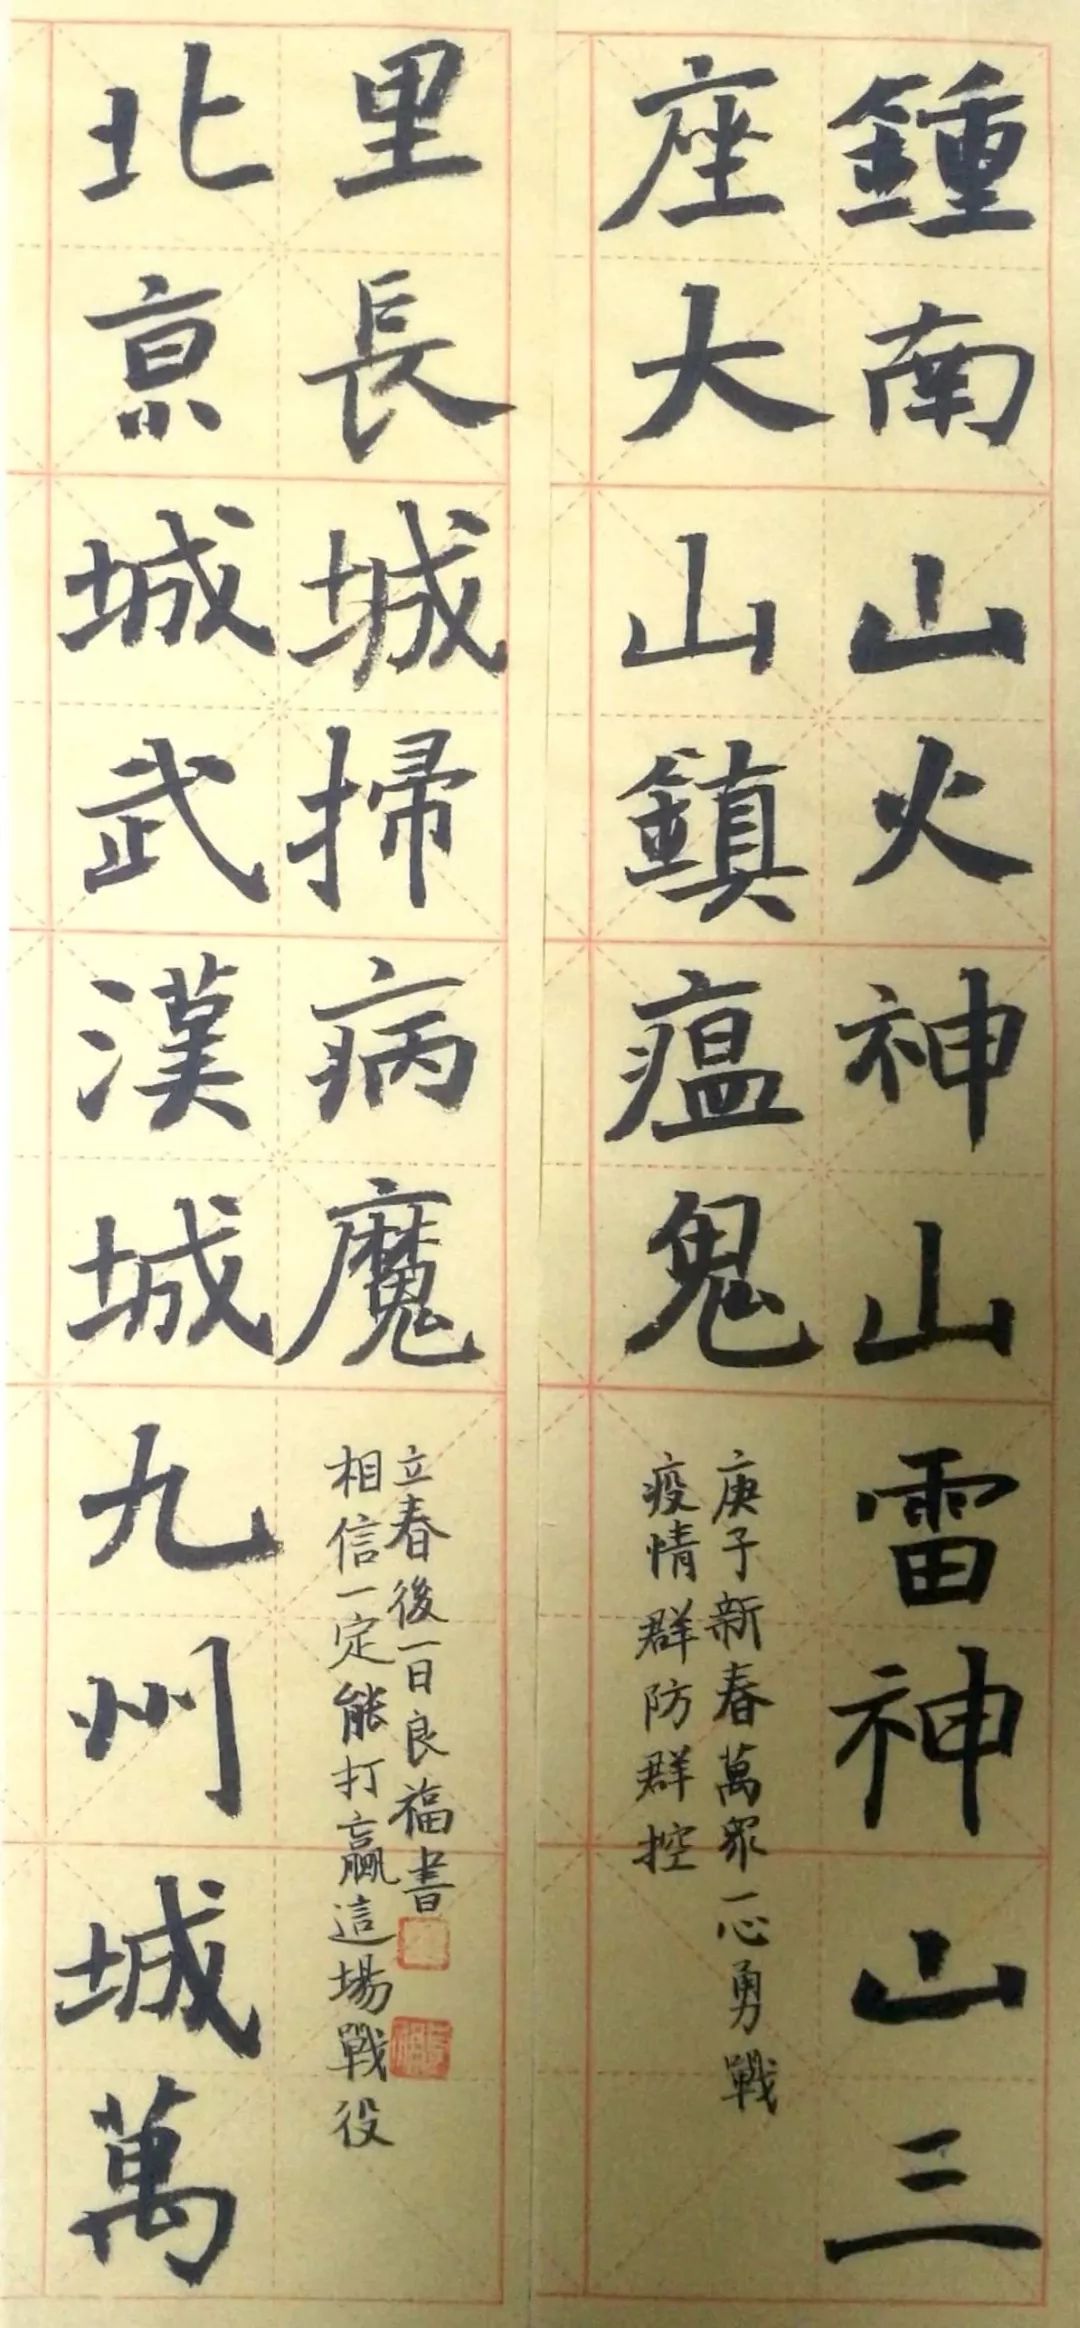 鍾南山火神山雷神山三
座大山鎮瘟鬼
庚子新春萬眾一心勇戰
疫情群防群控
北亰城武漢城九州城萬
里長城掃病魔
相信一定能打贏這場戰役
立春後一日良福書